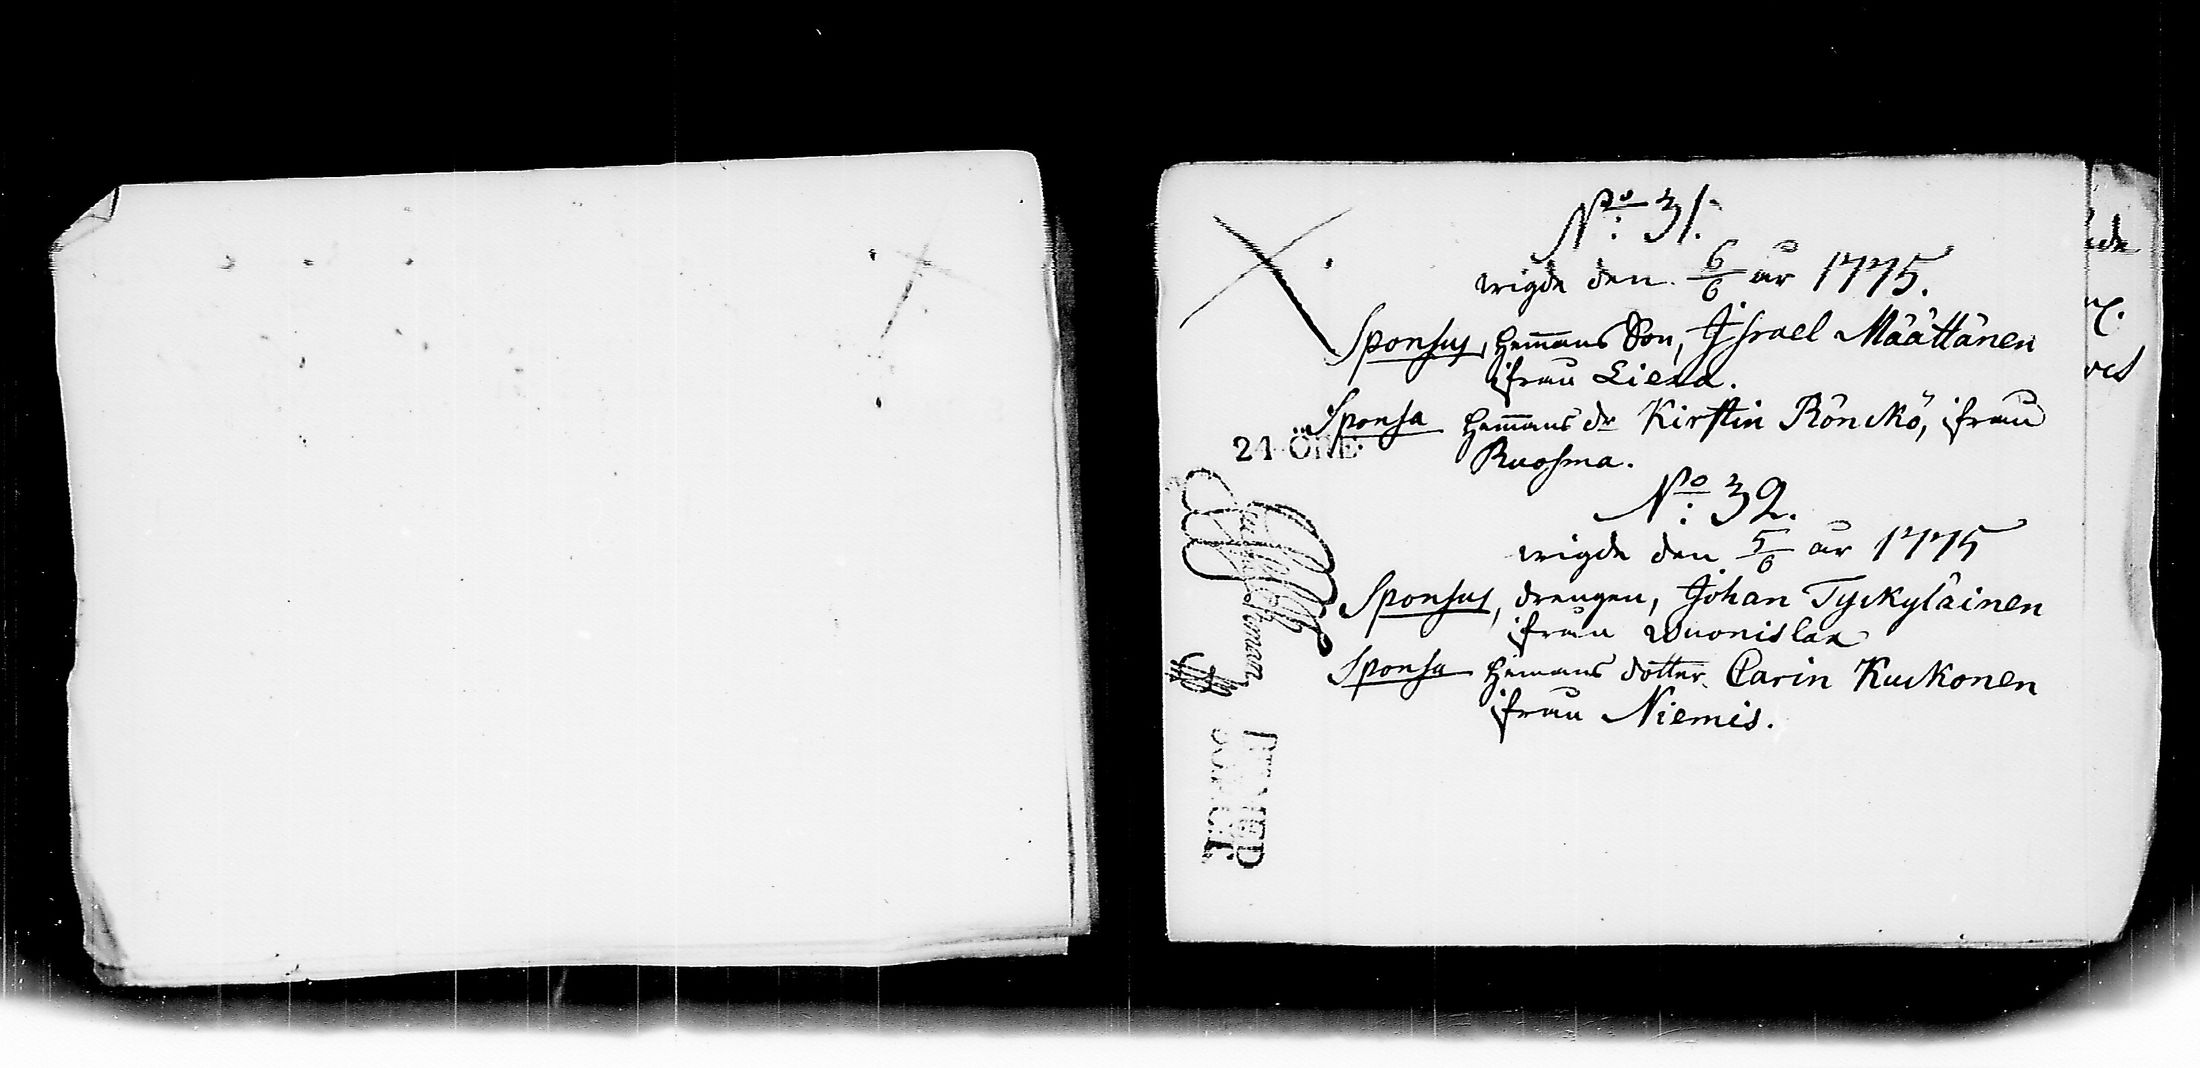 No: 31.
wigde den 6/6 år 1775.
Sponsus, Hem̄ans Son, Jsrael Määttänen
ifrån Liexa.
Sponsa Hem̄ans dr Kirstin Rönckö, ifrån
Ruosma.
24 ÖRE
No: 32.
wigde den 5/6 år 1775
Sponsus, drengen, Johan Tyckyläinen
ifrån Wuonislax
Sponsa Hemans dotter Carin Kuckonen
ifrån Niemis.